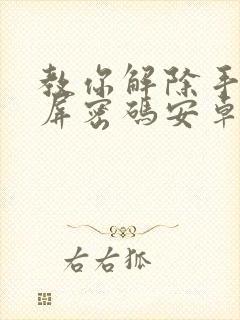 教你解除手
屏密码安卓
右右狐